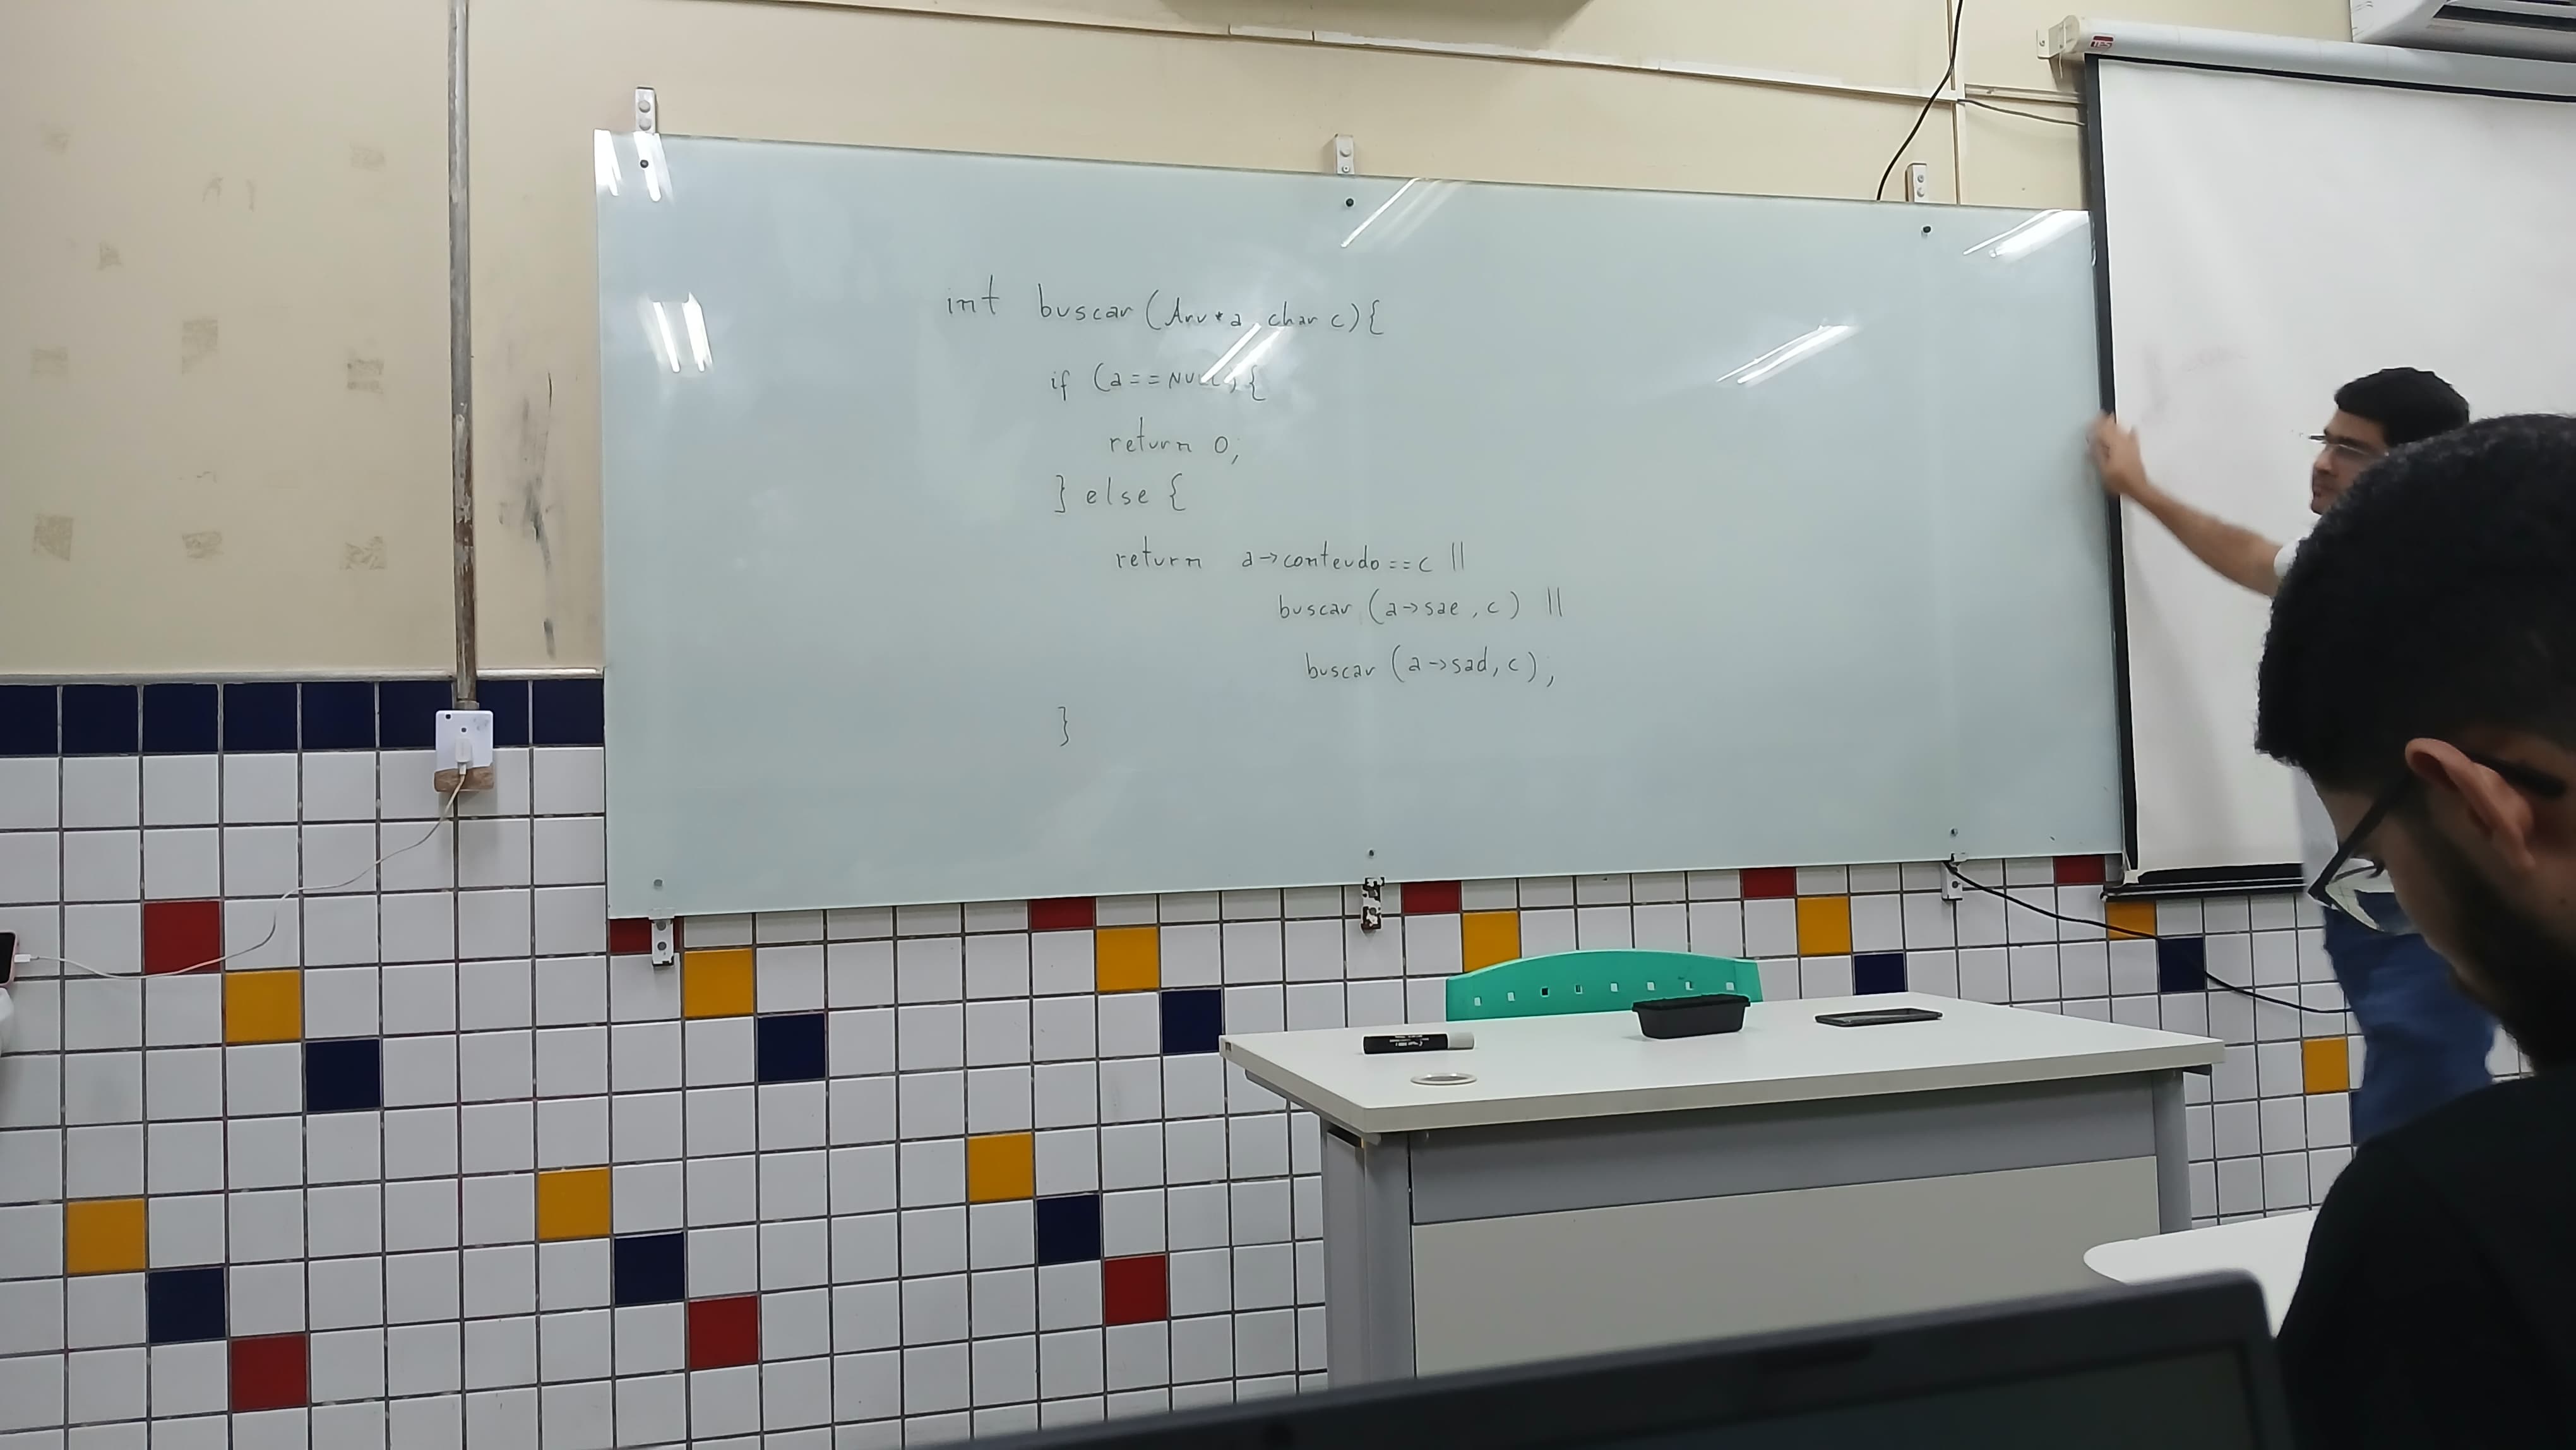 int buscar (Arv*a, char c){
if (a==NULL) {
return 0;
} else {
return a->conteudo==c ||
buscar (a->sae, c) ||
buscar (a->sad, c);
}